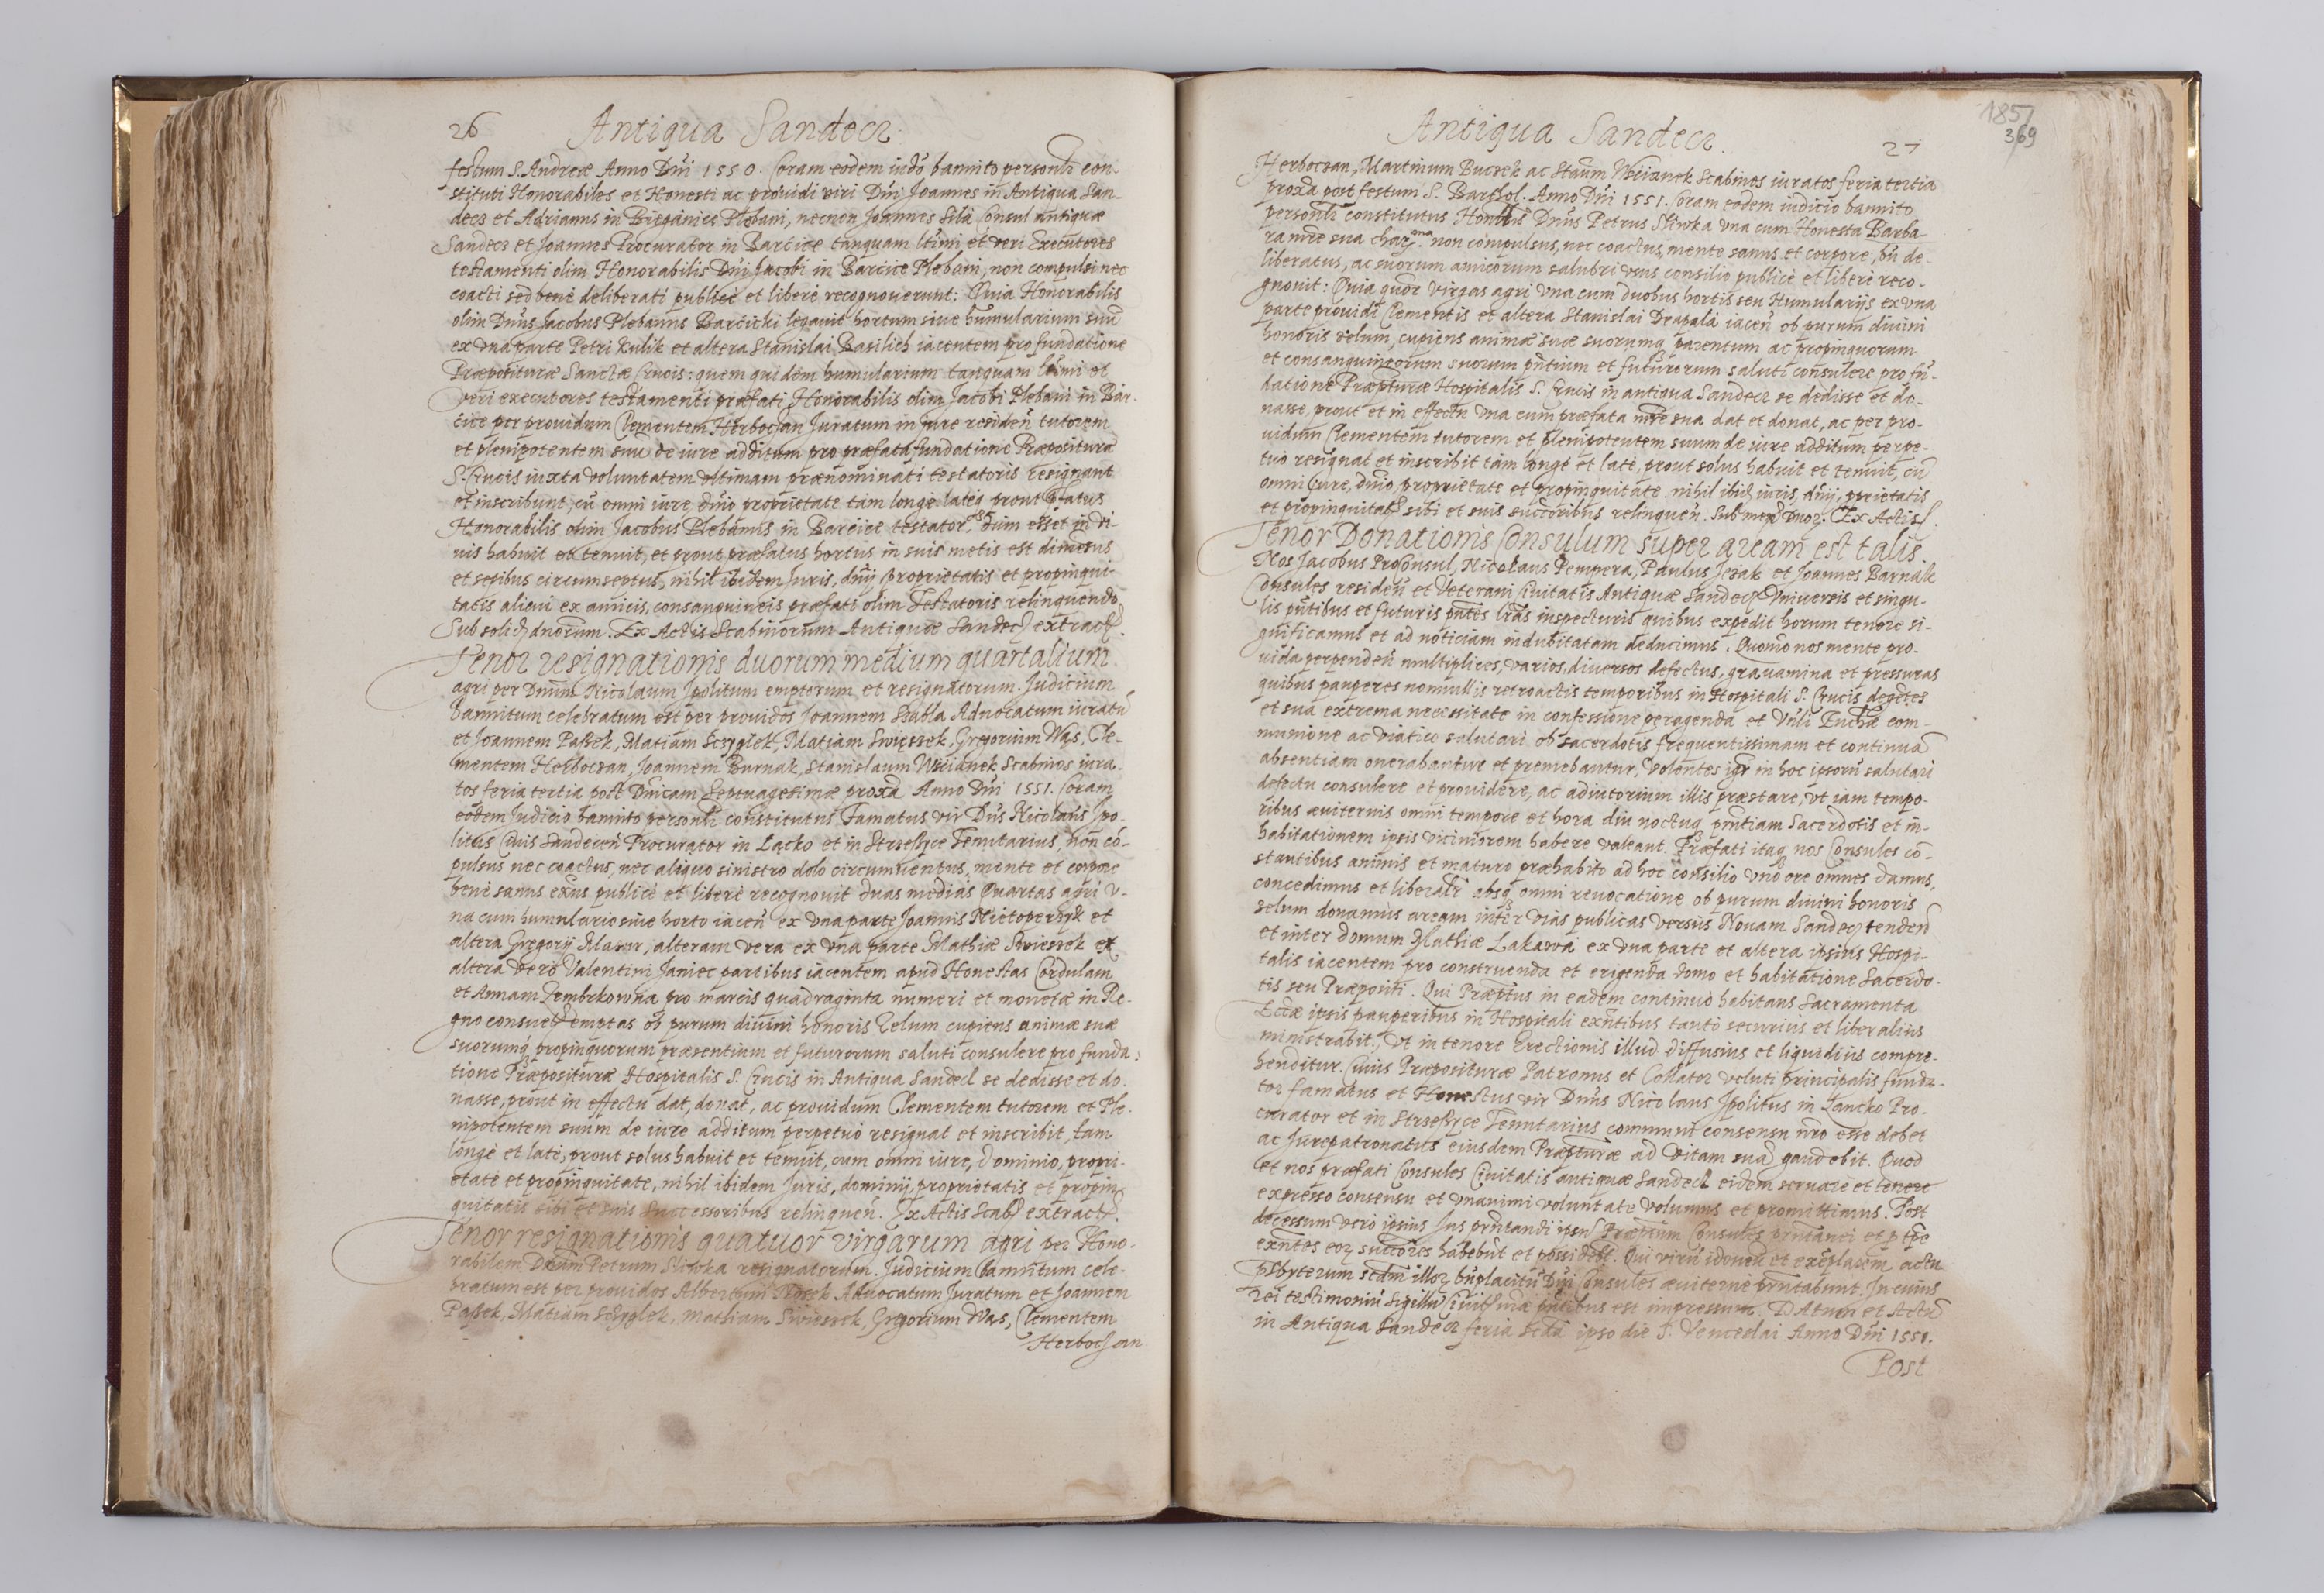 26 Antiqua Sandecz.
festum S. Andreæ Anno Dñi 1550. Coram eodem iudõ bannito personlr con-
stituti Honorabiles et Honesti ac prouidi viri Dñi Joannes in Antiqua San-
decz et Adrianus in Biegánice Plebani, necnon Joannes Silá Consul antiquæ
Sandecz et Joannes Procurator in Barcice tanquam ltimi et veri Executores
testamenti olim Honorabilis Dñi Jacobi in Barcice Plebani, non compulsi nec
coacti sed benè deliberati publicè et liberè recognouerunt: Quia Honorabilis
olim Dñus Jacobus Plebanus Barcicki legauit hortum siue humularium suũ
ex vna parte Petri Kulik et altera Stanislai Basilich iacentem pro fundatione
Præposituræ Sanctæ Crucis: quem quidem humularium tanquam ltimi et
veri executores testamenti præfati Honorabilis olim Jacobi Plebani in Bar-
cice per prouidum Clementem Herboczan Juratum in iure residen̄ tutorem
et plenipotentem suũ de iure additum pro præfata fundatione Præpositura
S. Crucis iuxta voluntatem vltimam prænominati testatoris resignant
et inscribunt, cũ omni iure dnio proprietate tam longè lateq prout pfatus
Honorabilis olim Jacobus Plebanus in Barcice testator dum esset in vi-
uis habuit et tenuit, et prout præfatus hortus in suis metis est dimensus
et sepibus circumseptus, nihil ibidem Juris, dnij proprietatis et propinqui-
tatis alicui ex amicis, consanguineis præfati olim Testatoris relinquendo
Sub solid dnorum. Ex Actis Scabinorum Antiquæ Sandecz extract.
Tenor resignationis duorum medium quartalium
agri per Dnum Nicolaum Jpolitum emptorum et resignatorum. Judicium
bannitum celebratum est per prouidos Joannem Szabla Aduocatum iuratũ
et Joannem Paszek, Matiam Sczyglek, Matiam Swięszek, Gregorium Wąs, Cle-
mentem Herboczan, Joannem Burnak, Stanislaum Wscianek Scabinos iura-
tos feria tertia post Dnicam Septuagesimæ proxã Anno Dñi 1551. Coram
eodem Judicio bannito personlr constitutus Famatus vir Dñs Nicolaus Jpo-
litus Ciuis Sandecen̄ Procurator in Lącko et in Strzeszyce Tenutarius, non cõ-
pulsus nec coactus, nec aliquo sinistro dolo circumuentus, mente et corpore
benè sanus exñs publicè et liberè recognouit duas medias Quartas agri v-
na cum humulario siue horto iacen̄ ex vna parte Joannis Nietoperzyk et
altera Gregorij Mazur, alteram vero ex vna parte Mathiæ Swieszek et
altera vero Valentini Janiec partibus iacentem apud Honestas Cordulam
et Annam Dembrkowna pro marcis quadraginta numeri et monetæ in Re-
gno consuet emptas ob purum diuini honoris Zelum cupiens animæ suæ
suorumq propinquorum præsentium et futurorum saluti consulere pro funda-
tione Præpositurae Hospitalis S. Crucis in Antiqua Sandecz se dedisse et do-
nasse, prout in effectu dat, donat, ac prouidum Clementem tutorem et Ple-
nipotentem suum de iure additum perpetuò resignat et inscribit, tam
longè et latè, prout solus habuit et tenuit, cum omni iure, dominio, propri-
etate et propinquitate, nihil ibidem Juris, dominij, proprietatis et propin-
quitatis sibi et suis successoribus relinquen̄. Ex Actis Scab extract.
Tenor resignationis quatuor virgarum agri per Hono-
rabilem Dnum Petrum Sliwka resignatorum. Judicium bannitum cele-
bratum est per prouidos Albertum Aduocatum Juratum et Joannem
Paszek, Matiam Sczyglek, Mathiam Swieszek, Gregorium Wąs, Clementem
Herboczan
1851
369
Antiqua Sandecz. 27
Herboczan, Martinum Buczek ac Staum Wscianek Scabinos iuratos feria tertia
proxa post festum S. Barthol. Anno Dñi 1551. Coram eodem iudicio bannito
personlr constitutus Honlis Dñus Petrus Sliwka vna cum Honesta Barba-
ra mre sua charma non compulsus, nec coactus, mente sanus et corpore, bñ de-
liberatus, ac suorum amicorum salubri vsus consilio publicè et liberè reco-
gnouit: Quia quor virgas agri vna cum duobus hortis seu Humularijs ex vna
parte prouidi Clementis et altera Stanislai Drapalá iacen̄ ob purum diuini
honoris zelum, cupiens animæ suæ suorumq parentum ac propinquorum
et consanguineorum suorum pntium et futurorum saluti consulere pro fũ-
datione Præpturæ Hospitalis S. Crucis in antiqua Sandecz se dedisse et do-
nasse, prout et in effectu vna cum præfata mre sua dat et donat, ac per pro-
uidum Clementem tutorem et plenipotentem suum de iure additum perpe-
tuò resignat et inscribit tàm longè et latè, prout solus habuit et tenuit, cũ
omni iure, dnio, proprietate et propinquitate nihil ibid iuris, dnij, pprietatis
et propinquitat sibi et suis succoribus relinquen̄. Sub mem duor. Ex Actis.
Tenor Donationis Consulum super aream est talis.
Nos Jacobus ProConsul, Nicolaus Pempera, Paulus Jezak et Joannes Barnak
Consules residen̄ et Veterani Ciuitatis Antiquæ Sandecz Vniuersis et singu-
lis pntibus et futuris pntes lras inspecturis quibus expedit horum tenore si-
gnificamus et ad noticiam indubitatam deducimus. Quomo nos mente pro-
uida perpenden̄ multiplices, varios, diuersos defectus, grauamina et pressuras
quibus pauperes nonnullis retroactis temporibus in Hospitali S. Crucis degẽtes
et sua extrema necessitate in confessione peragenda et Vnli Eucha com-
munione ac viatico salutari ob sacerdotis frequentissimam et continuã
absentiam onerabantur et premebantur, Volentes igr in hoc ipsorũ salutari
defectu consulere et prouidere, ac adiutorium illis præstare, vt iam tempo-
ribus æuiternis omni tempore et hora diu noctuq pntiam Sacerdotis et in-
habitationem ipsis viciniorem habere valeant. Præfati itaq nos Consules cõ-
stantibus animis et maturo præhabito ad hoc consilio vnò ore omnes damus,
concedimus et liberalr absq omni reuocatione ob purum diuini honoris
zelum donamus aream inter vias publicas versus Nouam Sandecz tenden̄
et inter domum Mathiæ Lakawá ex vna parte et altera ipsius Hospi-
talis iacentem pro construenda et erigenda domo et habitatione Sacerdo-
tis seu Præpositi. Qui Præptus in eadem continuò habitans Sacramenta
Eccæ ipsis pauperibus in Hospitali exntibus tantò securius et liberalius
ministrabit, vt in tenore Erectionis illud diffusius et liquidius compre-
henditur. Cuius Præpositurae Patronus et Collator veluti principalis funda-
tor famatus et Honestus vir Dñus Nicolaus Jpolitus in Lancko Pro-
curator et in Strzeszyce Tenutarius communi consensu nro esse debet
ac Jurepatronatus eiusdem Præpturæ ad vitam suã gaudebit. Quod
et nos præfati Consules Ciuitatis antiquæ Sandecz eidem seruare et tenere
expresso consensu et vnanimi voluntate volumus et promittimus. Post
decessum vero ipsius Jus prntandi ipsũ Præptum Consules prntanei et p tpe
exntes eorum succores habebũt et possidebt. Qui virũ idoneũ et exẽplarem, actu
psbyterum scdm illor bñplacitũ Dñi Consules æuiternè prntabunt. In cuius
rei testimoniũ Sigillũ Ciuit pntibus est impressum. Datum et Actũ
in Antiqua Sandecz feria scda ipso die S. Venceslai Anno Dñi 1551.
Post